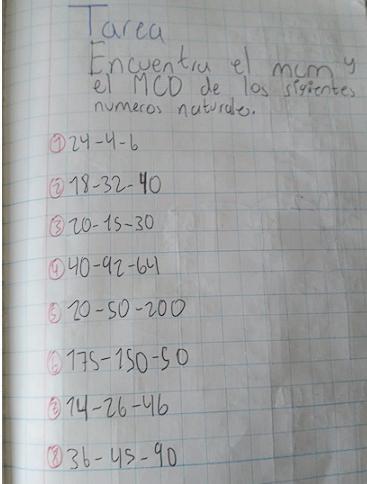 Tarea
Encuentra el mcm y
el MCD de los sigientes
numeros naturales.
① 24-4-6
② 18-32-40
③ 20-15-30
④ 40-92-64
⑤ 20-50-200
⑥ 175-150-50
⑦ 14-26-46
⑧ 36-45-90